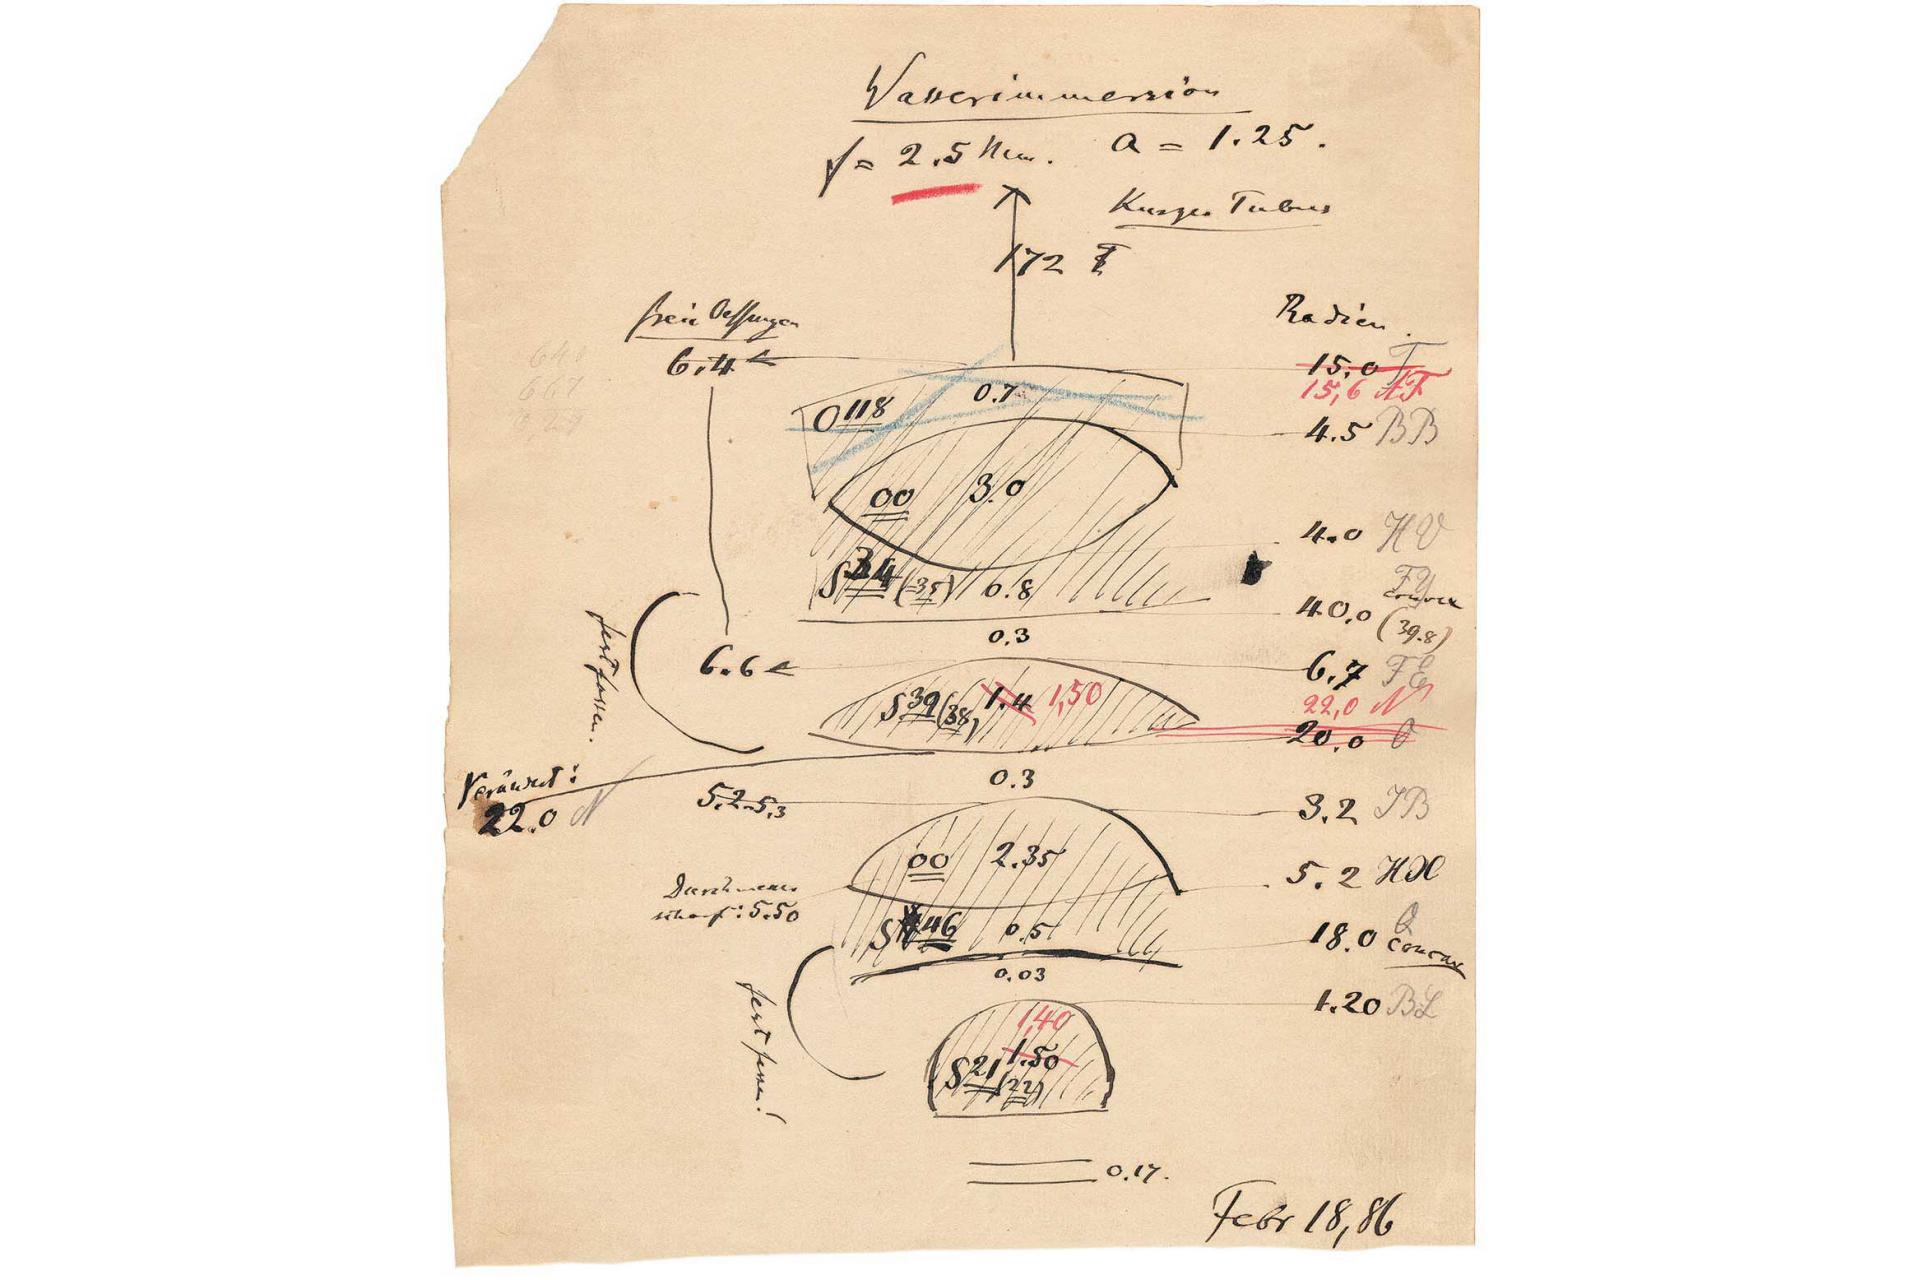 Wasserimmersion
f = 2.5 Mm. a = 1.25.
Kurzer Tubus
172
freie Oeffnungen
Radien.
6.4
15.0 T
15,6 AF
O 118
0.7
4.5 BB
00
3.0
4.0 HV
S 34 (35) 0.8
FY
convex
40.0 (39.8)
0.3
6.6
6.7 FE
S 39 (38) 1.4 1,50
22,0 N
20.0 O
fest fassen.
Verändert:
22.0 N
0.3
5.2-5.3
3.2 JB
00
2.35
5.2 HX
Durchmesser
scharf: 5.50
S 46
0.5
18.0 Q
concav
0.03
1.20 BL
fest fassen!
1,40
1.50
S 21 (22)
0.17.
Febr 18, 86
640
667
0,29